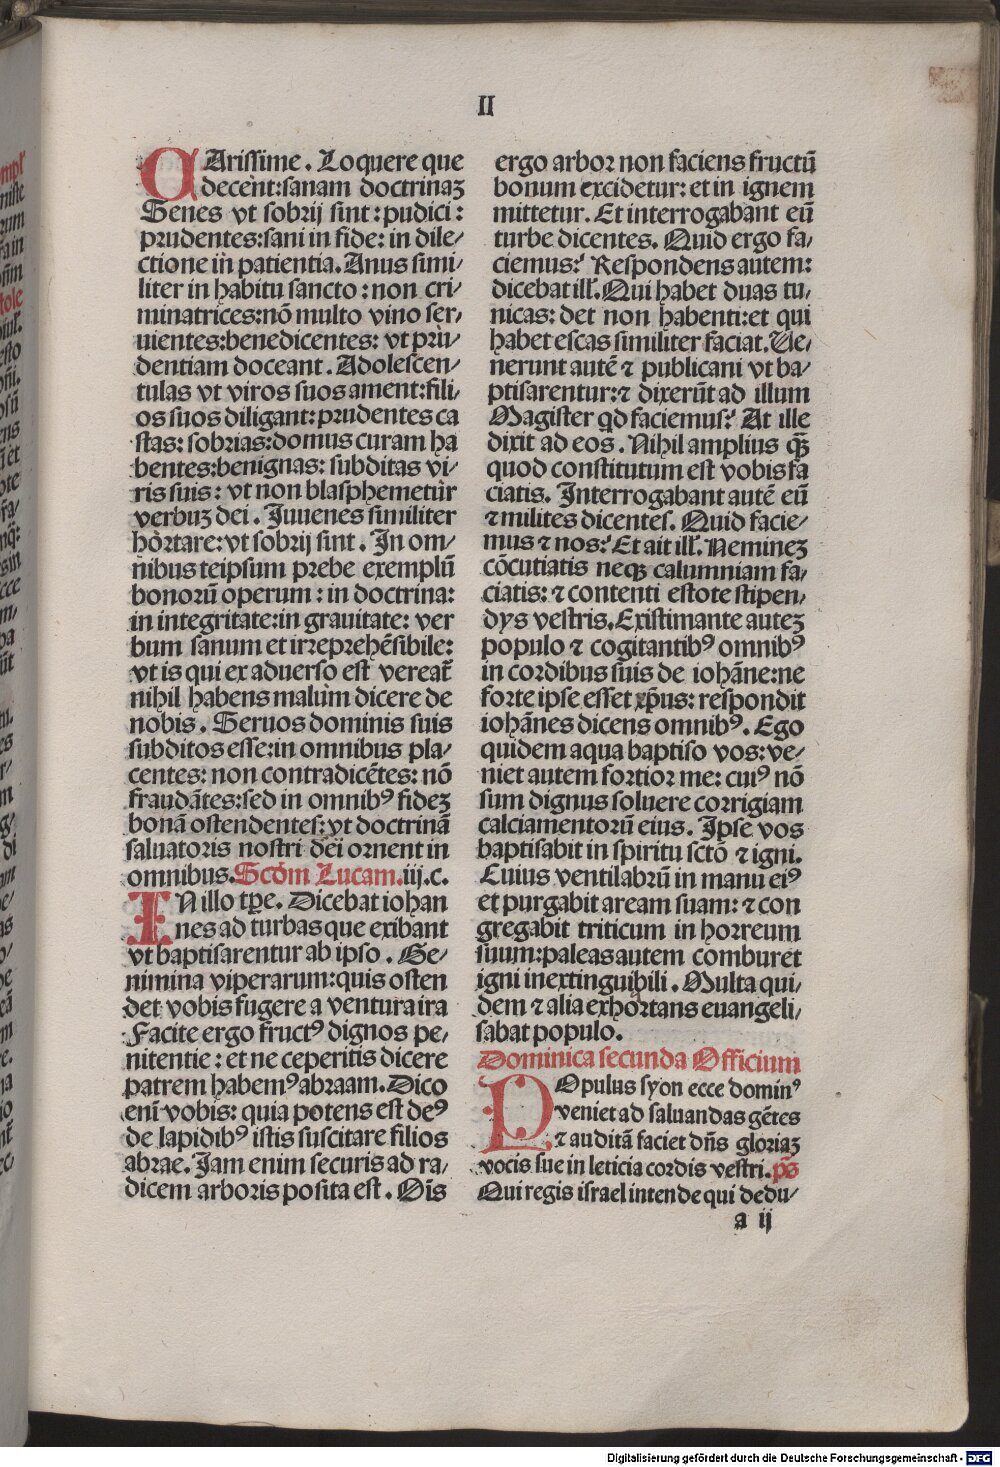 II
CArissime. Loquere que
decent: sanam doctrinaʒ
Senes vt sobrij sint: pudici:
prudentes: sani in fide: in dile⸗
ctione in patientia. Anus simi⸗
liter in habitu sancto: non cri⸗
minatrices: nō multo vino ser⸗
uientes: benedicentes: vt pru⸗
dentiam doceant. Adolescen⸗
tulas vt viros suos ament: fili⸗
os suos diligant: prudentes ca
stas: sobrias: domus curam ha
bentes: benignas: subditas vi⸗
ris suis: vt non blasphemetur
verbuʒ dei. Juuenes similiter
hortare: vt sobrij sint. In om⸗
nibus teipsum prebe exemplū
bonorū operum: in doctrina:
in integritate: in grauitate: ver
bum sanum et irreprehēsibile:
vt is qui ex aduerso est vereat᷑
nihil habens malum dicere de
nobis. Seruos dominis suis
subditos esse: in omnibus pla⸗
centes: non contradicētes: nō
fraudātes: sed in omnibꝰ fideʒ
bonā ostendentes: vt doctrinā
saluatoris nostri dei ornent in
omnibus. Scd̄m Lucam. iij. c.
IN illo tp̄e. Dicebat iohan
nes ad turbas que exibant
vt baptisarentur ab ipso. Ge⸗
nimina viperarum: quis osten
det vobis fugere a ventura ira
Facite ergo fructꝰ dignos pe⸗
nitentie: et ne ceperitis dicere
patrem habemꝰ abraam. Dico
eni̅ vobis: quia potens est deꝰ
de lapidibꝰ istis suscitare filios
abrae. Jam enim securis ad ra⸗
dicem arboris posita est. Oīs
ergo arbor non faciens fructū
bonum excidetur: et in ignem
mittetur. Et interrogabant eū
turbe dicentes. Quid ergo fa⸗
ciemus? Respondens autem:
dicebat ill̕. Qui habet duas tu⸗
nicas: det non habenti: et qui
habet escas similiter faciat. Ue⸗
nerunt autē ⁊ publicani vt ba⸗
ptisarentur: ⁊ dixerūt ad illum
Magister qd faciemus? At ille
dixit ad eos. Nihil amplius qꝫ̄
quod constitutum est vobis fa
ciatis. Interrogabant autē eū
⁊ milites dicentes. Quid facie⸗
mus ⁊ nos? Et ait ill̕. Nemineʒ
cōcutiatis neqꝫ calumniam fa⸗
ciatis: ⁊ contenti estote stipen⸗
dys vestris. Existimante auteʒ
populo ⁊ cogitantibꝰ omnibꝰ
in cordibus suis de iohāne: ne
forte ipse esset xp̄us: respondit
iohānes dicens omnibꝰ. Ego
quidem aqua baptiso vos: ve⸗
niet autem fortior me: cuiꝰ nō
sum dignus soluere corrigiam
calciamentorū eius. Ipse vos
baptisabit in spiritu sctō ⁊ igni.
Cuius ventilabrū in manu eiꝰ
et purgabit aream suam: ⁊ con
gregabit triticum in horreum
suum: paleas autem comburet
igni inextinguibili. Multa qui⸗
dem ⁊ alia exhortans euangeli⸗
sabat populo.
Dominica secunda Officium
POpulus syon ecce dominꝰ
veniet ad saluandas gētes
⁊ auditā faciet dn̄s gloriaʒ
vocis sue in leticia cordis vestri. p̄s
Qui regis israel intende qui dedu⸗
a ij
Digitalisierung gefördert durch die Deutsche Forschungsgemeinschaft - DFG